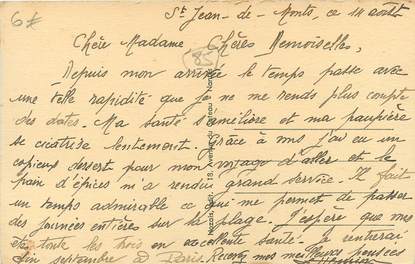 6#
St Jean-de-Monts, ce 14 août
Chère Madame Chères Demoiselles,
(85)
Depuis mon arrivée le temps passe avec
une telle rapidité que je ne me rends plus compte
des dates. Ma santé s'améliore et ma paupière
se cicatrise lentement. Grâce à vous j'ai eu un
copieux dessert pour mon voyage d'aller et le
pain d'épices m'a rendu grand service. Il fait
un temps admirable ce qui me permet de passer
des journées entières sur la plage. J'espère que vous
êtes toute les trois en excellente santé. Je rentrerai
fin septembre à Paris. Recevez mes meilleures pensées